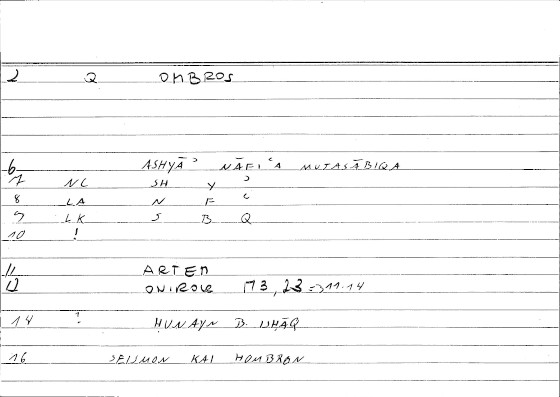 2 Q OMBROS
6 ASHYĀʾ NĀFIʿA MUTASĀBIQA
7 NC SH Y ʾ
8 LA N F ʿ
9 LK S B Q
10 !
11 ARTEM
12 ONIROCR 173, 23 => 11.14
14 ! ḤUNAYN B. ISḤĀQ
16 SEISMON KAI HOMBRON